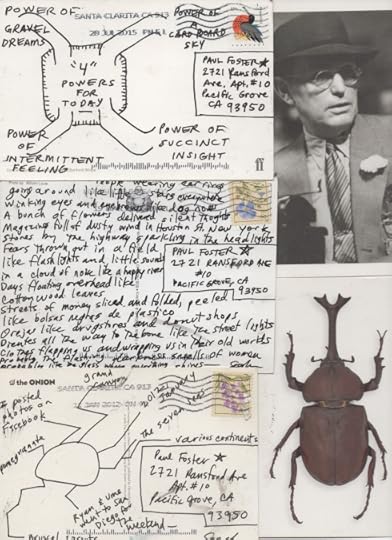 POWER OF
GRAVEL
DREAMS
SANTA CLARITA CA 913
28 JUL 2015 PM 5 L
POWER OF
A
CARD BOARD
SKY
"4"
POWERS
FOR
TODAY
PAUL FOSTER
2721 Ransford
Ave, Apt. #10
Pacific Grove, CA
93950
POWER
OF
INTERMITTENT
FEELING
POWER OF
SUCCINT
INSIGHT
ff
people wearing earrings
going around like little stars everywhere
winking eyes and
A bunch of flowers delivered silent thoughts
Magazine full of dusty wind in Houston St. New York
Stones by the highway sparkling in the headlights
Fears thrown out in a field
like flashlights and little sounds
in a cloud of noise like a happy river
Days floating overhead like
Cottonwood leaves
Streets of money sliced and folded, peeled
like bolsas negras de plastico
Orejas like drugstores and donut shops
Dientes all the way to the bone like the street lights
Clothes flapping us and wrapping us in their old worlds
darkness smells of women
PAUL FOSTER
2721 RANSFORD AVE
#10
PACIFIC GROVE, CA
93950
the ONION
SANTA CLARITA CA 913
grand
canyon
JAN 2012 PM
old January
I posted
photos on
Facebook
the seven seas
pomegranate
various continents
Paul Foster
2721 Ransford Ave
Apt. #10
Pacific Grove, CA
93950
Ryan & Uma
went to San
Diego for
the
Weekend—